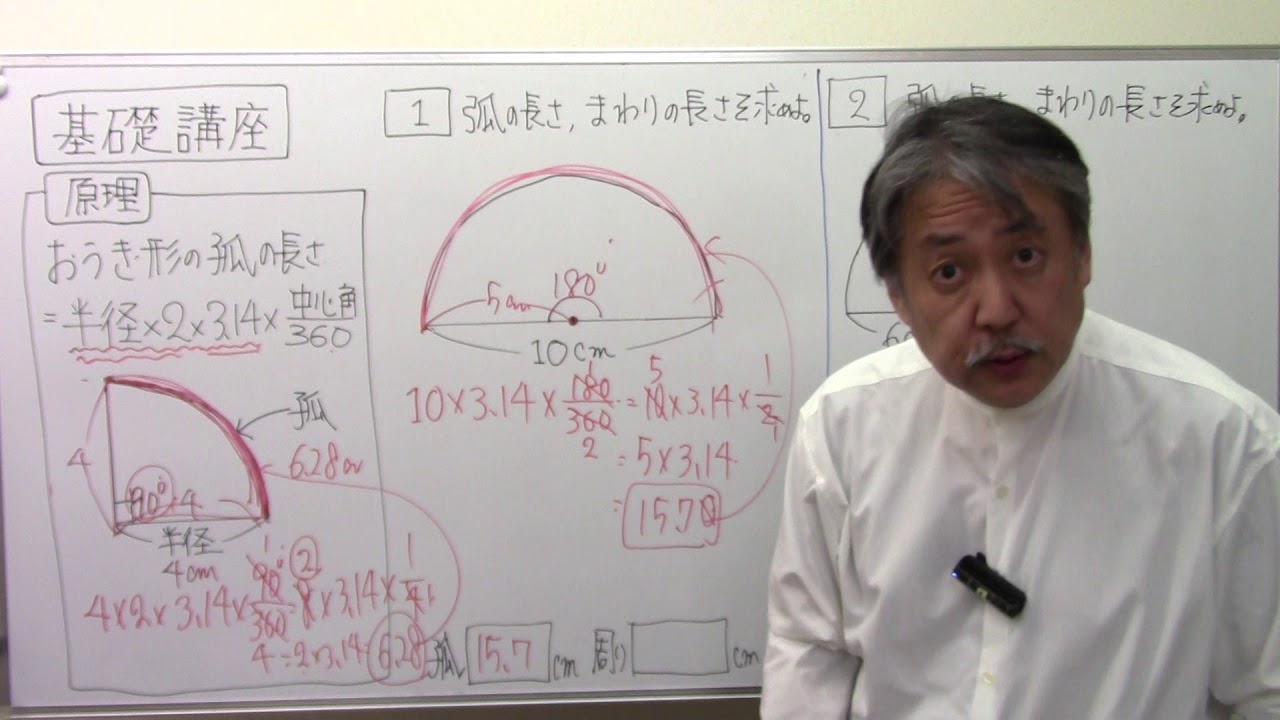 基礎講座
原理
おうぎ形の弧の長さ
=半径×2×3.14×中心角/360
弧
6.28cm
4
90° 4
半径
4cm
4×2×3.14×90/360
8×3.14×1/4
=2×3.14
6.28
1 弧の長さ,まわりの長さを求めよ。
180°
5cm
10cm
10×3.14×180/360=10×3.14×1/2
=5×3.14
=15.70
弧 15.7 cm 周り cm
2 まわりの長さを求めよ。